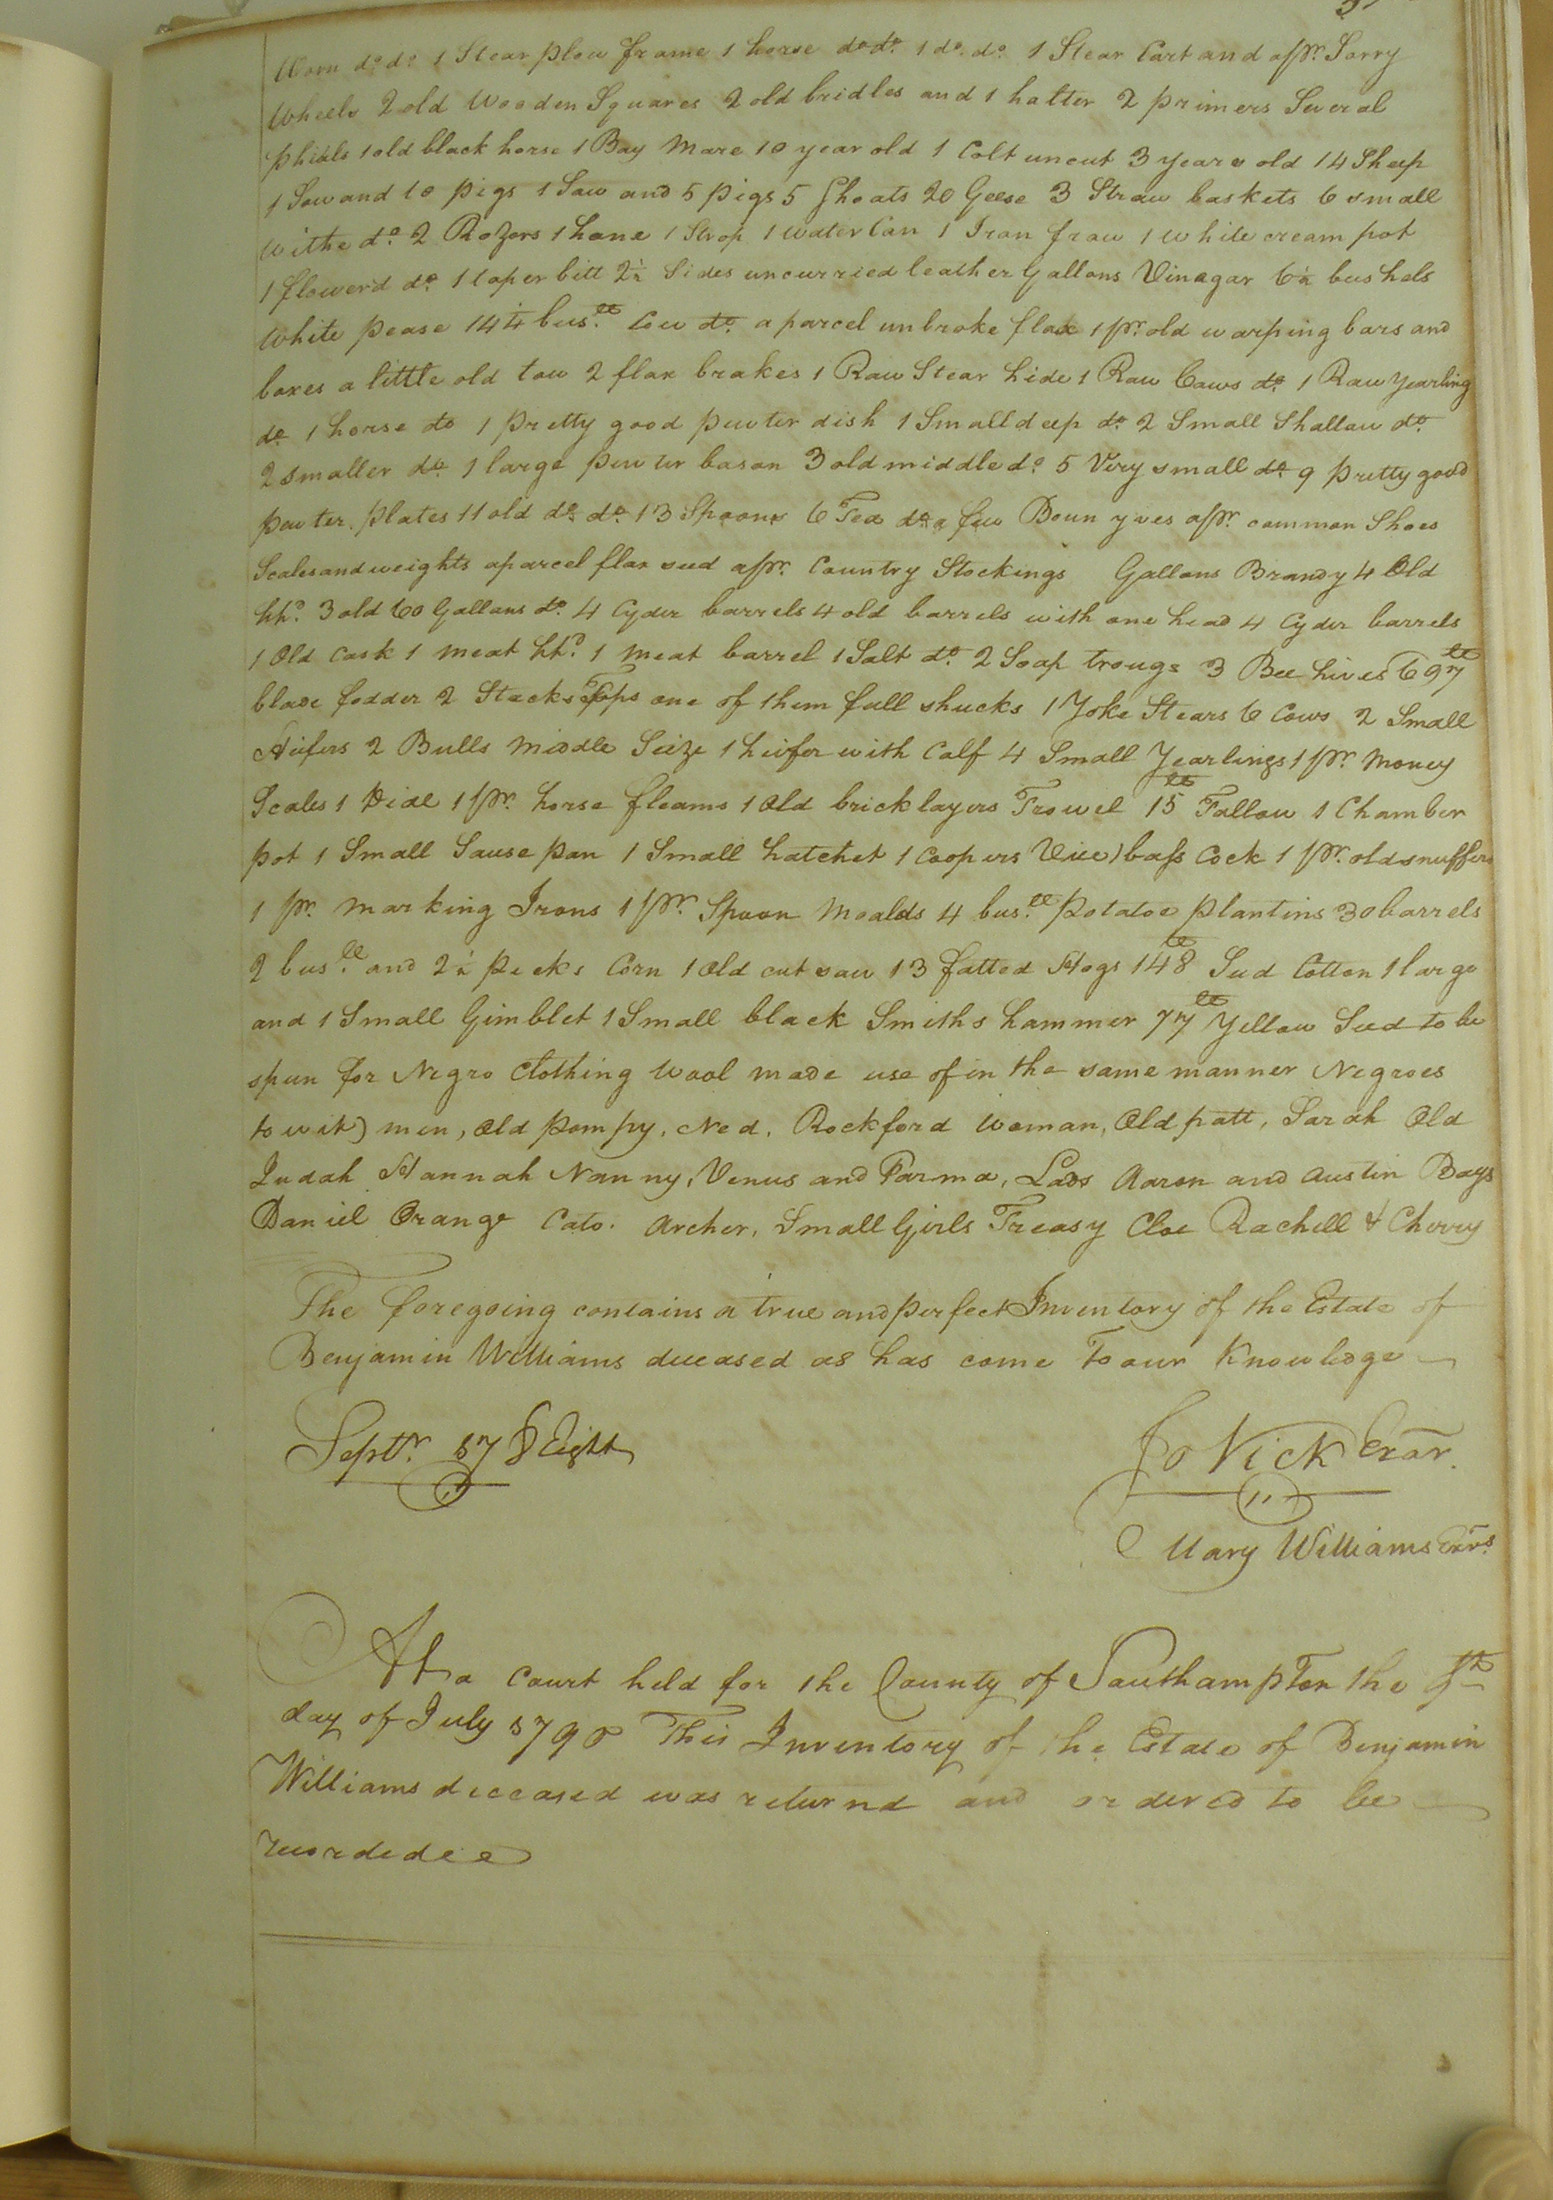 Worn do. do. 1 Stear plow frame 1 horse do do. 1 do. do. 1 Stear Cart and a pr. Sorry
Wheels 2 old Wooden Squares 2 old bridles and 1 halter 2 primers Several
phials 1 old black horse 1 Bay Mare 10 year old 1 Colt uncut 3 years old 14 Sheep
1 Sow and 10 pigs 1 Saw and 5 pigs 5 Shoats 20 Geese 3 Straw baskets 6 small
withe do. 2 Rozors 1 hone 1 Strop 1 water Can 1 Iron fraw 1 white cream pot
1 flowerd do. 1 taper bitt 2½ Sides uncurried leather Gallons Vinagar 6½ bushels
White pease 14¼ bus.ll Cow do. a parcel unbroke flax 1 pr. old warping bars and
boxes a little old tow 2 flax brakes 1 Raw Stear hide 1 Raw Caws do. 1 Raw Yearling
do. 1 horse do 1 pretty good pewter dish 1 Small deep do. 2 Small Shallow do.
2 smaller do. 1 large pewter bason 3 old middle do. 5 Very small do. 9 pretty good
pewter plates 11 old do. do. 13 Spoons 6 Tea do. a few a pr. common Shoes
Scales and weights a parcel flax seed a pr. Country Stockings Gallons Brandy 4 Old
hhd. 3 old 60 Gallons do. 4 Cyder barrels 4 old barrels with one head 4 Cyder barrels
1 Old Cask 1 meat hhd. 1 meat barrel 1 Salt do. 2 Soap trougs 3 Bee hives 697 lb
blade fodder 2 Stacks Tops one of them full shucks 1 Yoke Stears 6 Cows 2 Small
Hiefers 2 Bulls Middle Seize 1 hiefer with Calf 4 Small Yearlings 1 pr. Money
Scales 1 1 pr. horse fleams 1 Old bricklayers Trowel 15 lb Tallow 1 Chamber
pot 1 Small Sause pan 1 Small hatchet 1 Coopers Vice 1 bass Cock 1 pr. old snuffers
1 pr. marking Irons 1 pr. Spoon Moalds 4 bus.ll potatoe plantins 30 barrels
2 bus.ll and 2½ pecks Corn 1 Old cut saw 13 fatted Hogs 148 lb Sud Cotton 1 large
and 1 Small Gimblet 1 Small black Smiths hammer 77 lb Yellow Seed to be
spun for Negro Clothing Wool made use of in the same manner Negroes
to wit) men, Old Pompy, Ned, Rockford Woman, Old patt, Sarah Old
Judah Hannah Nanny, Venus and Farma, Lads Aaron and Austin Boys
Daniel Orange Cato. Archer, Small Girls Treasy Cloe Rachell & Cherry
The foregoing contains a true and perfect Inventory of the Estate of
Benjamin Williams deceased as has come To our Knowledge
Septr. 178 Eight
Jo Vick Exor.
Mary Williams Exrs.
At a Court held for the County of Southampton the 8th
day of July 1790 This Inventory of the Estate of Benjamin
Williams deceased was returnd and ordered to be
recorded